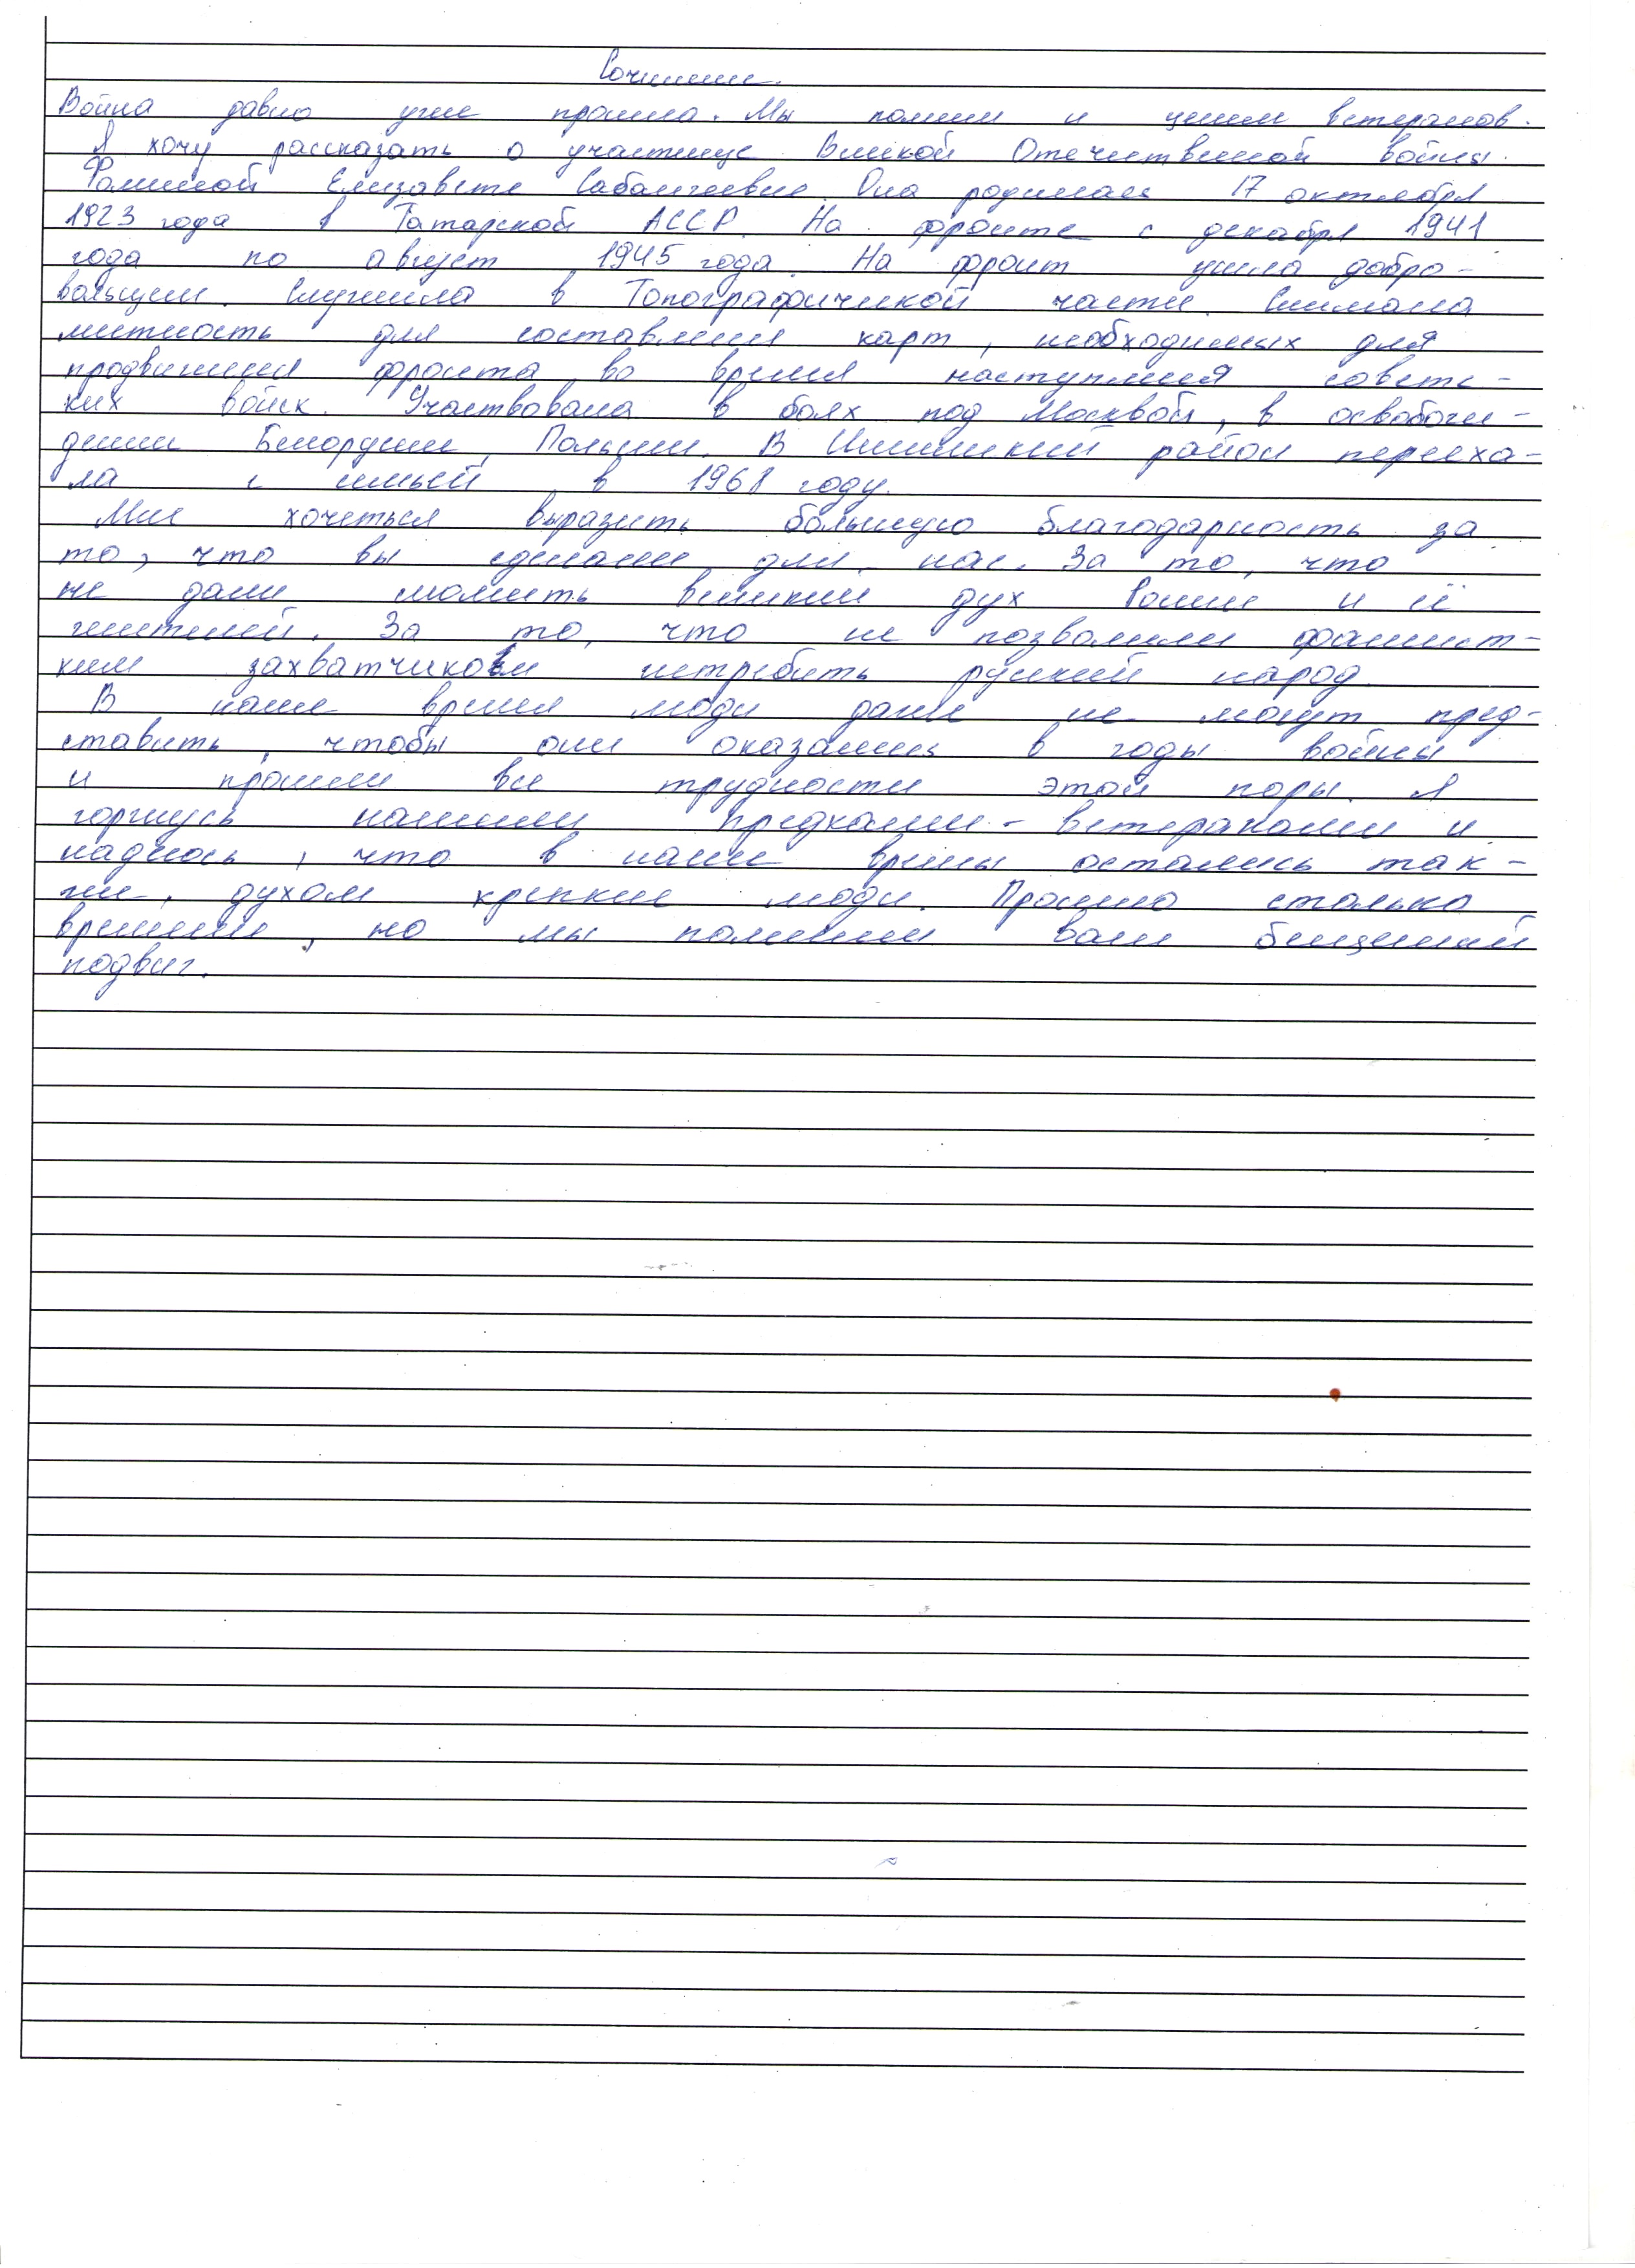 Сочинение.
Война давно уже прошла. Мы помним и ценим ветеранов.
Я хочу рассказать о участнице Великой Отечественной войны.
Фоминой Елизавете Сабангеевне. Она родилась 17 октября
1923 года в Татарской АССР. На фронте с декабря 1941
года по август 1945 года. На фронт ушла добро-
вольцем. Служила в Топографической части. Снимала
местность для составления карт, необходимых для
продвижения фронта во время наступления советс-
ких войск. Участвовала в боях под Москвой, в освобож-
дении Белоруссии, Польши. В район перееха-
ла с семьёй в 1968 году.
Мне хочеться выразить большую благодарность за
то, что вы сделали для нас. За то, что
не дали сломить великий дух России и её
жителей. За то, что не позволили фашист-
ким захватчикам истребить русский народ.
В наше время люди даже не могут пред-
ставить, чтобы они оказались в годы войны
и прошли все трудности этой поры. Я
горжусь нашими предками - ветеранами и
надеюсь, что в наше время остались так-
же духом крепкие люди. Прошло столько
времени, но мы помним ваш бесценный
подвиг.